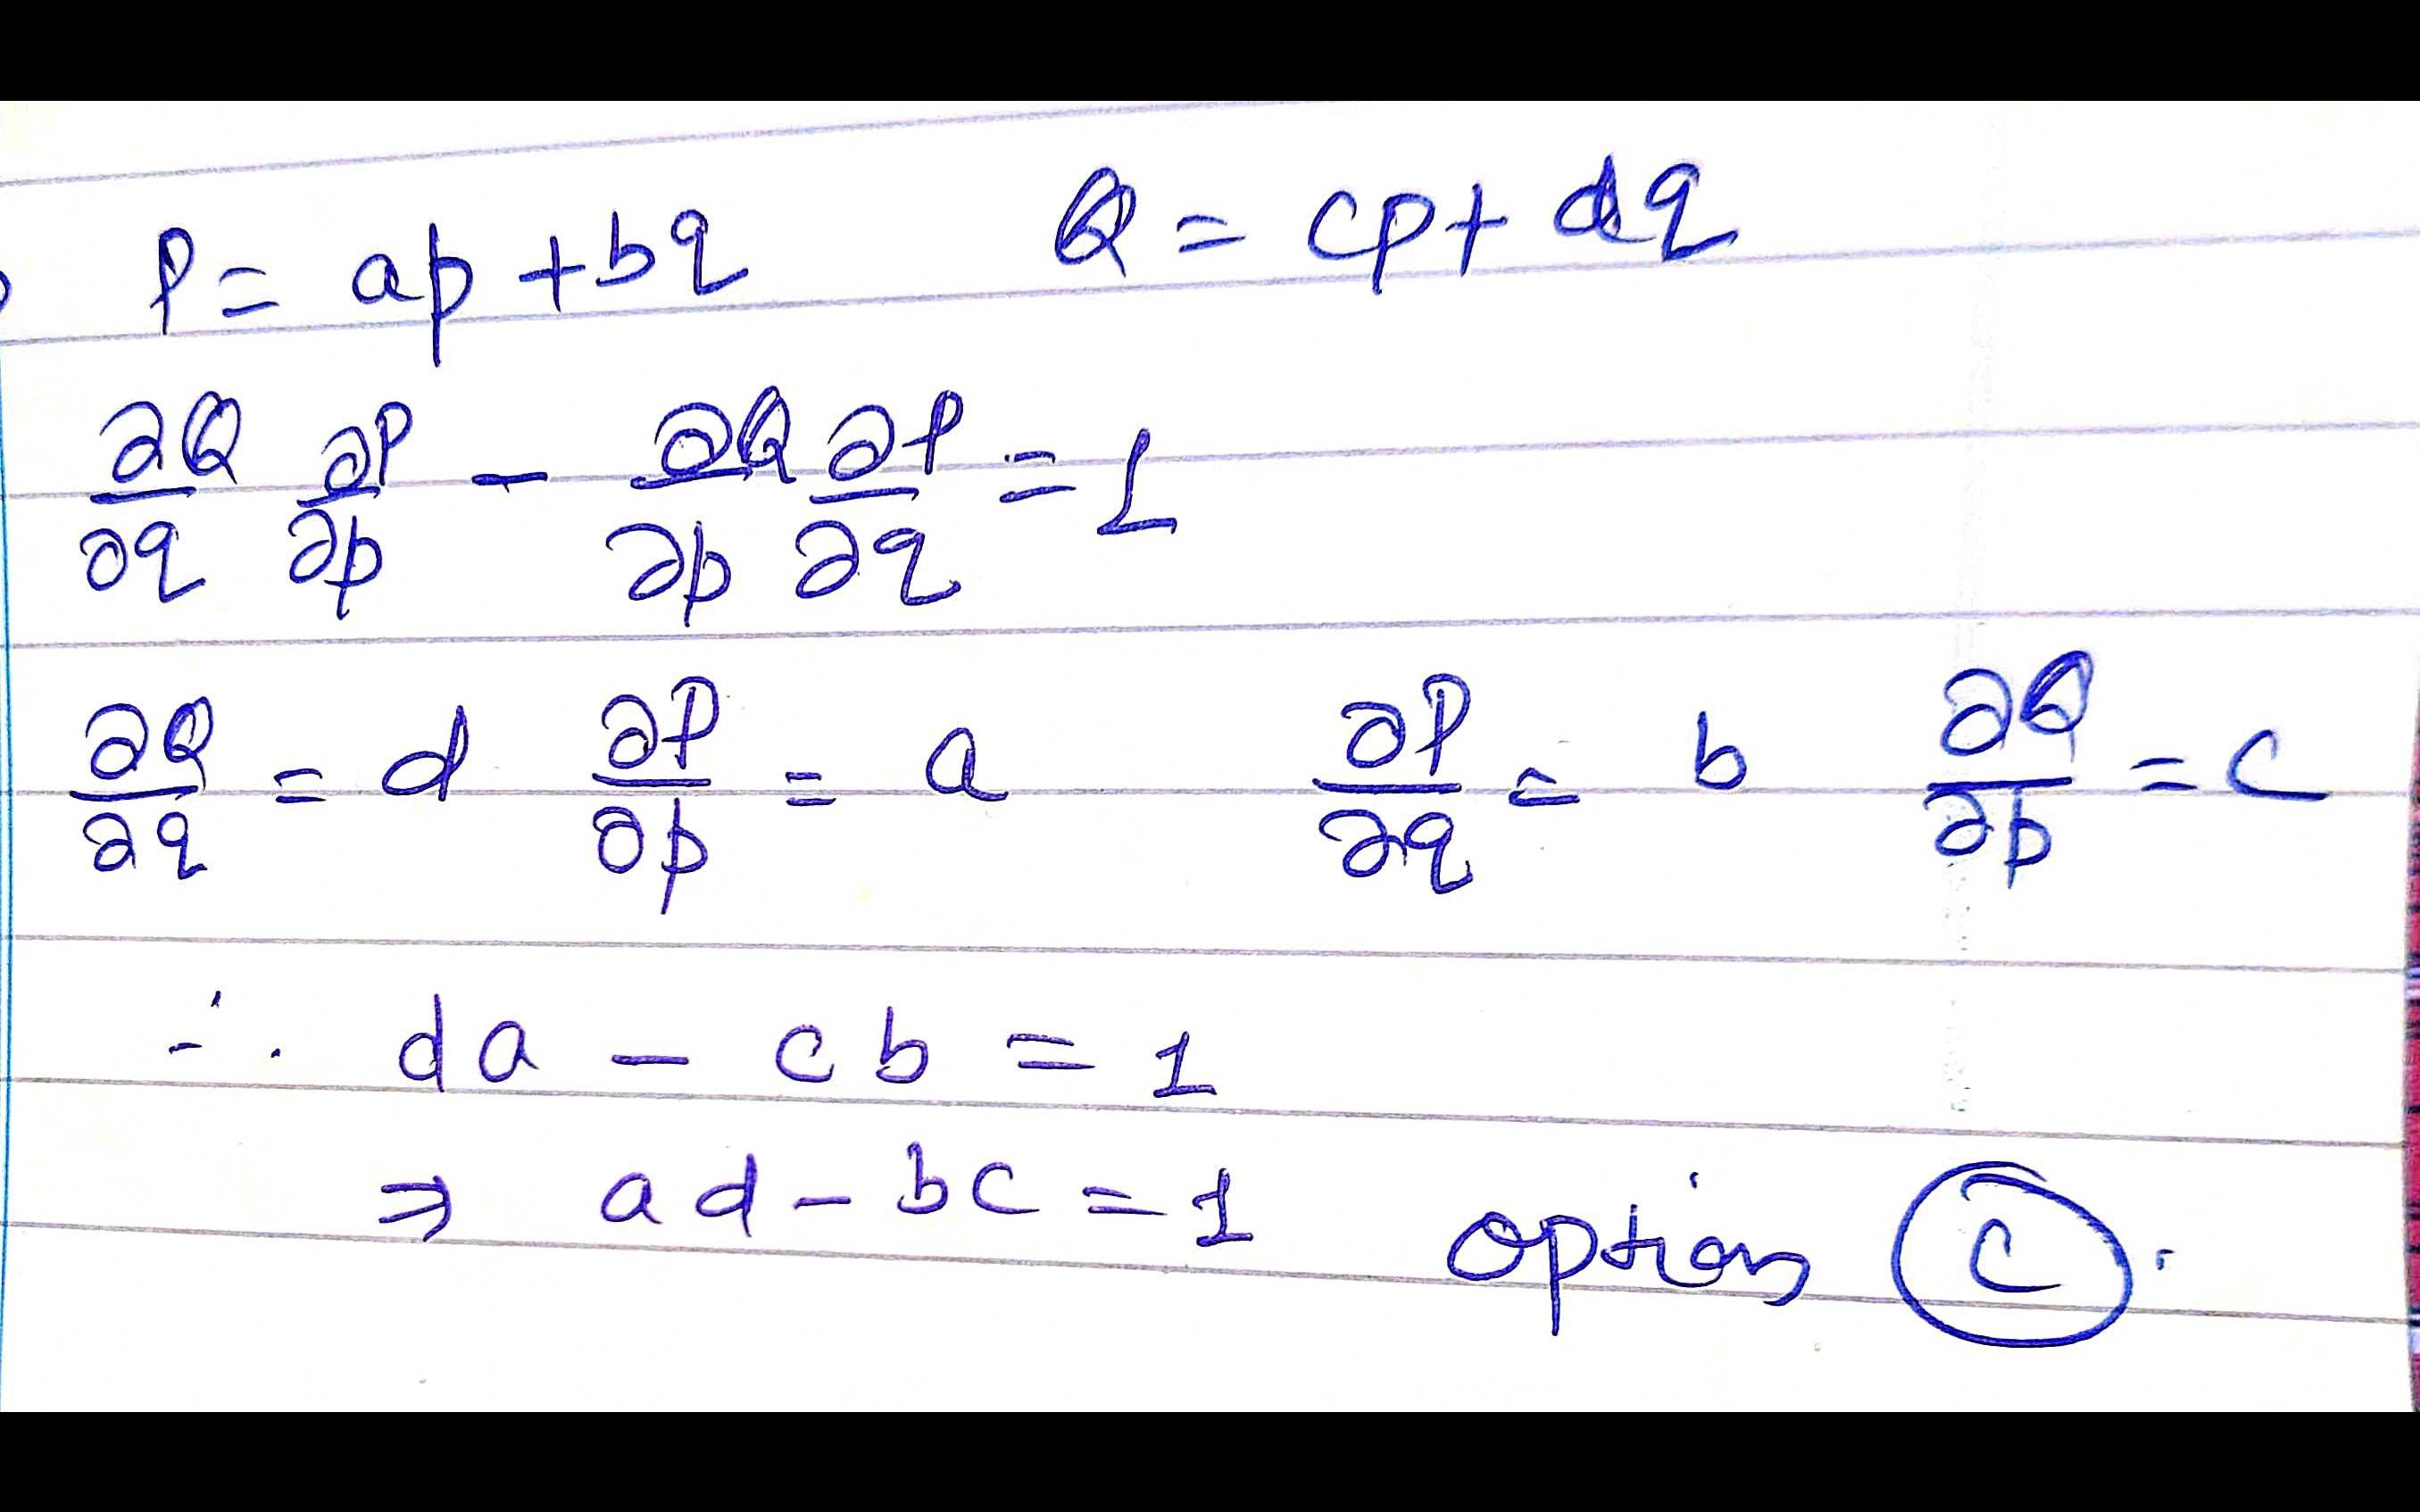 P = ap + bq    Q = cp + dq
∂Q/∂q ∂P/∂p − ∂Q/∂p ∂P/∂q = 1
∂Q/∂q = d  ∂P/∂p = a  ∂P/∂q = b  ∂Q/∂p = c
∴ da − cb = 1
⇒ ad − bc = 1  option C.